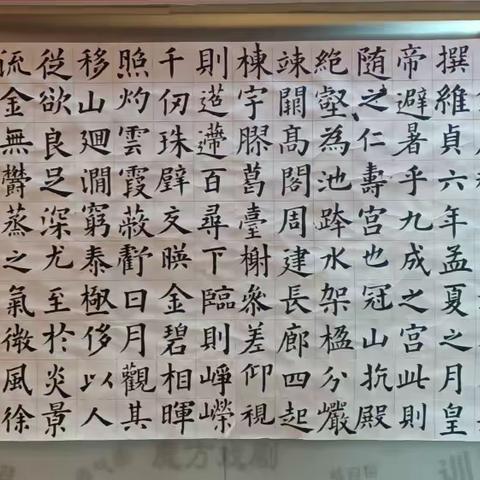 撰維貞六年孟夏之月皇
帝避暑乎九成之宮此則
随之仁壽宮也冠山抗殿
絶壑為池跨水架楹分巖
竦闕髙閣周建長廊四起
棟宇膠葛臺榭叅差仰視
則迢遰百尋下臨則崢嶸
千仞珠璧交暎金碧相暉
照灼雲霞蔽虧日月觀其
移山迴澗窮泰極侈以人
從欲良足深尤至於炎景
流金無欝蒸之氣微風徐